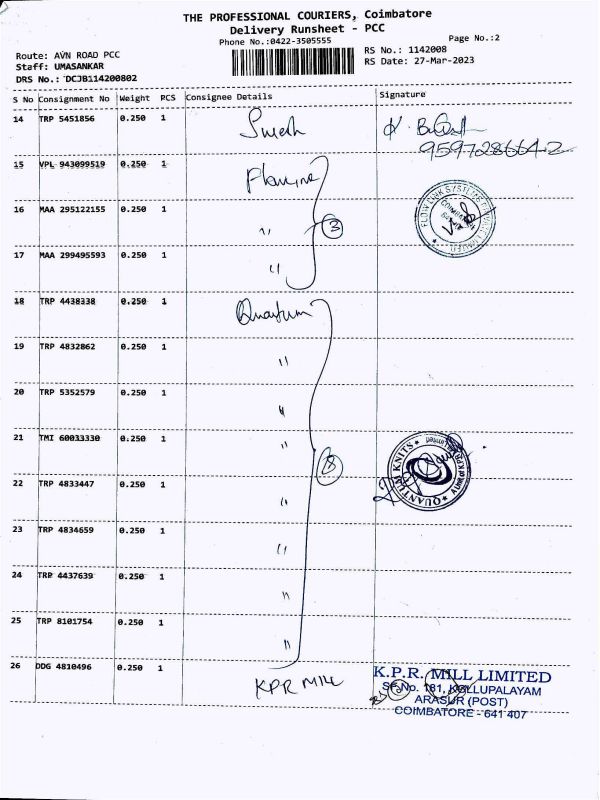 THE PROFESSIONAL COURIERS, Coimbatore
Delivery Runsheet - PCC
Phone No.:0422-3505555
Page No.:2
Route: AVN ROAD PCC
RS No.: 1142008
Staff: UMASANKAR
RS Date: 27-Mar-2023
DRS No.: DCJB114200802
S No Consignment No Weight PCS Consignee Details Signature
14 TRP 5451856 0.250 1 Suresh
9597286642
15 VPL 943099519 0.250 1
16 MAA 295122155 0.250 1 " 3
FLOW LINK SYSTEMS PRIVATE LIMITED
COIMBATORE
17 MAA 299495593 0.250 1 "
18 TRP 4438338 0.250 1 Quantum
19 TRP 4832862 0.250 1 "
20 TRP 5352579 0.250 1 "
21 TMI 60033330 0.250 1 " 8
QUANTUM KNITS
22 TRP 4833447 0.250 1 "
23 TRP 4834659 0.250 1 "
24 TRP 4437639 0.250 1 "
25 TRP 8101754 0.250 1 "
26 DDG 4810496 0.250 1 KPR MILL
K.P.R. MILL LIMITED
SF.No. 181, KOLLUPALAYAM
ARASUR (POST)
COIMBATORE - 641 407